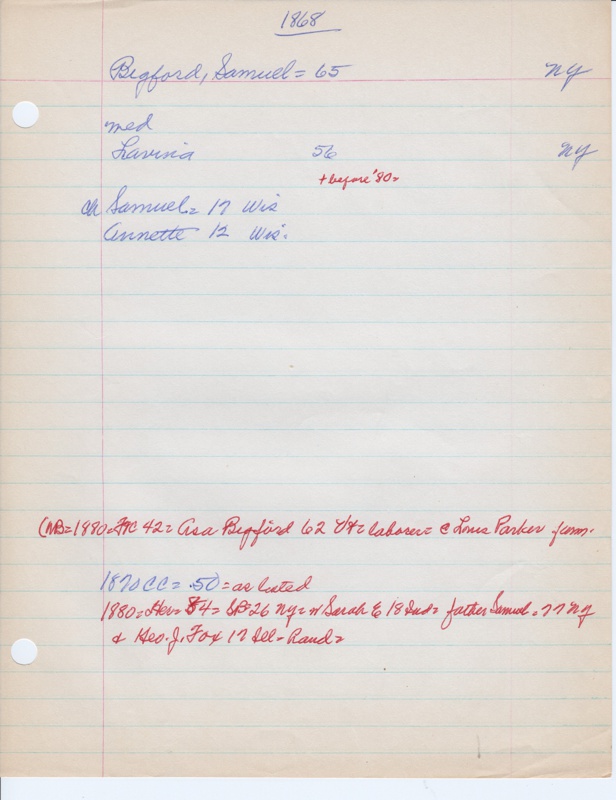 1868
Bigford, Samuel = 65 NY
med
Lavina 56 NY
+ before '80=
ch Samuel = 17 Wis
Annette 12 Wis.
(NB=1880= 42= Asa Bigford 62 Vt= laborer= c Louis Parker farm.
1870 CC= .50 = as listed
1880= Her= 84= SB=26 NY= w Sarah E 18 Ind= father Samuel. 77 NY
& Geo. J. Fox 17 Ill=